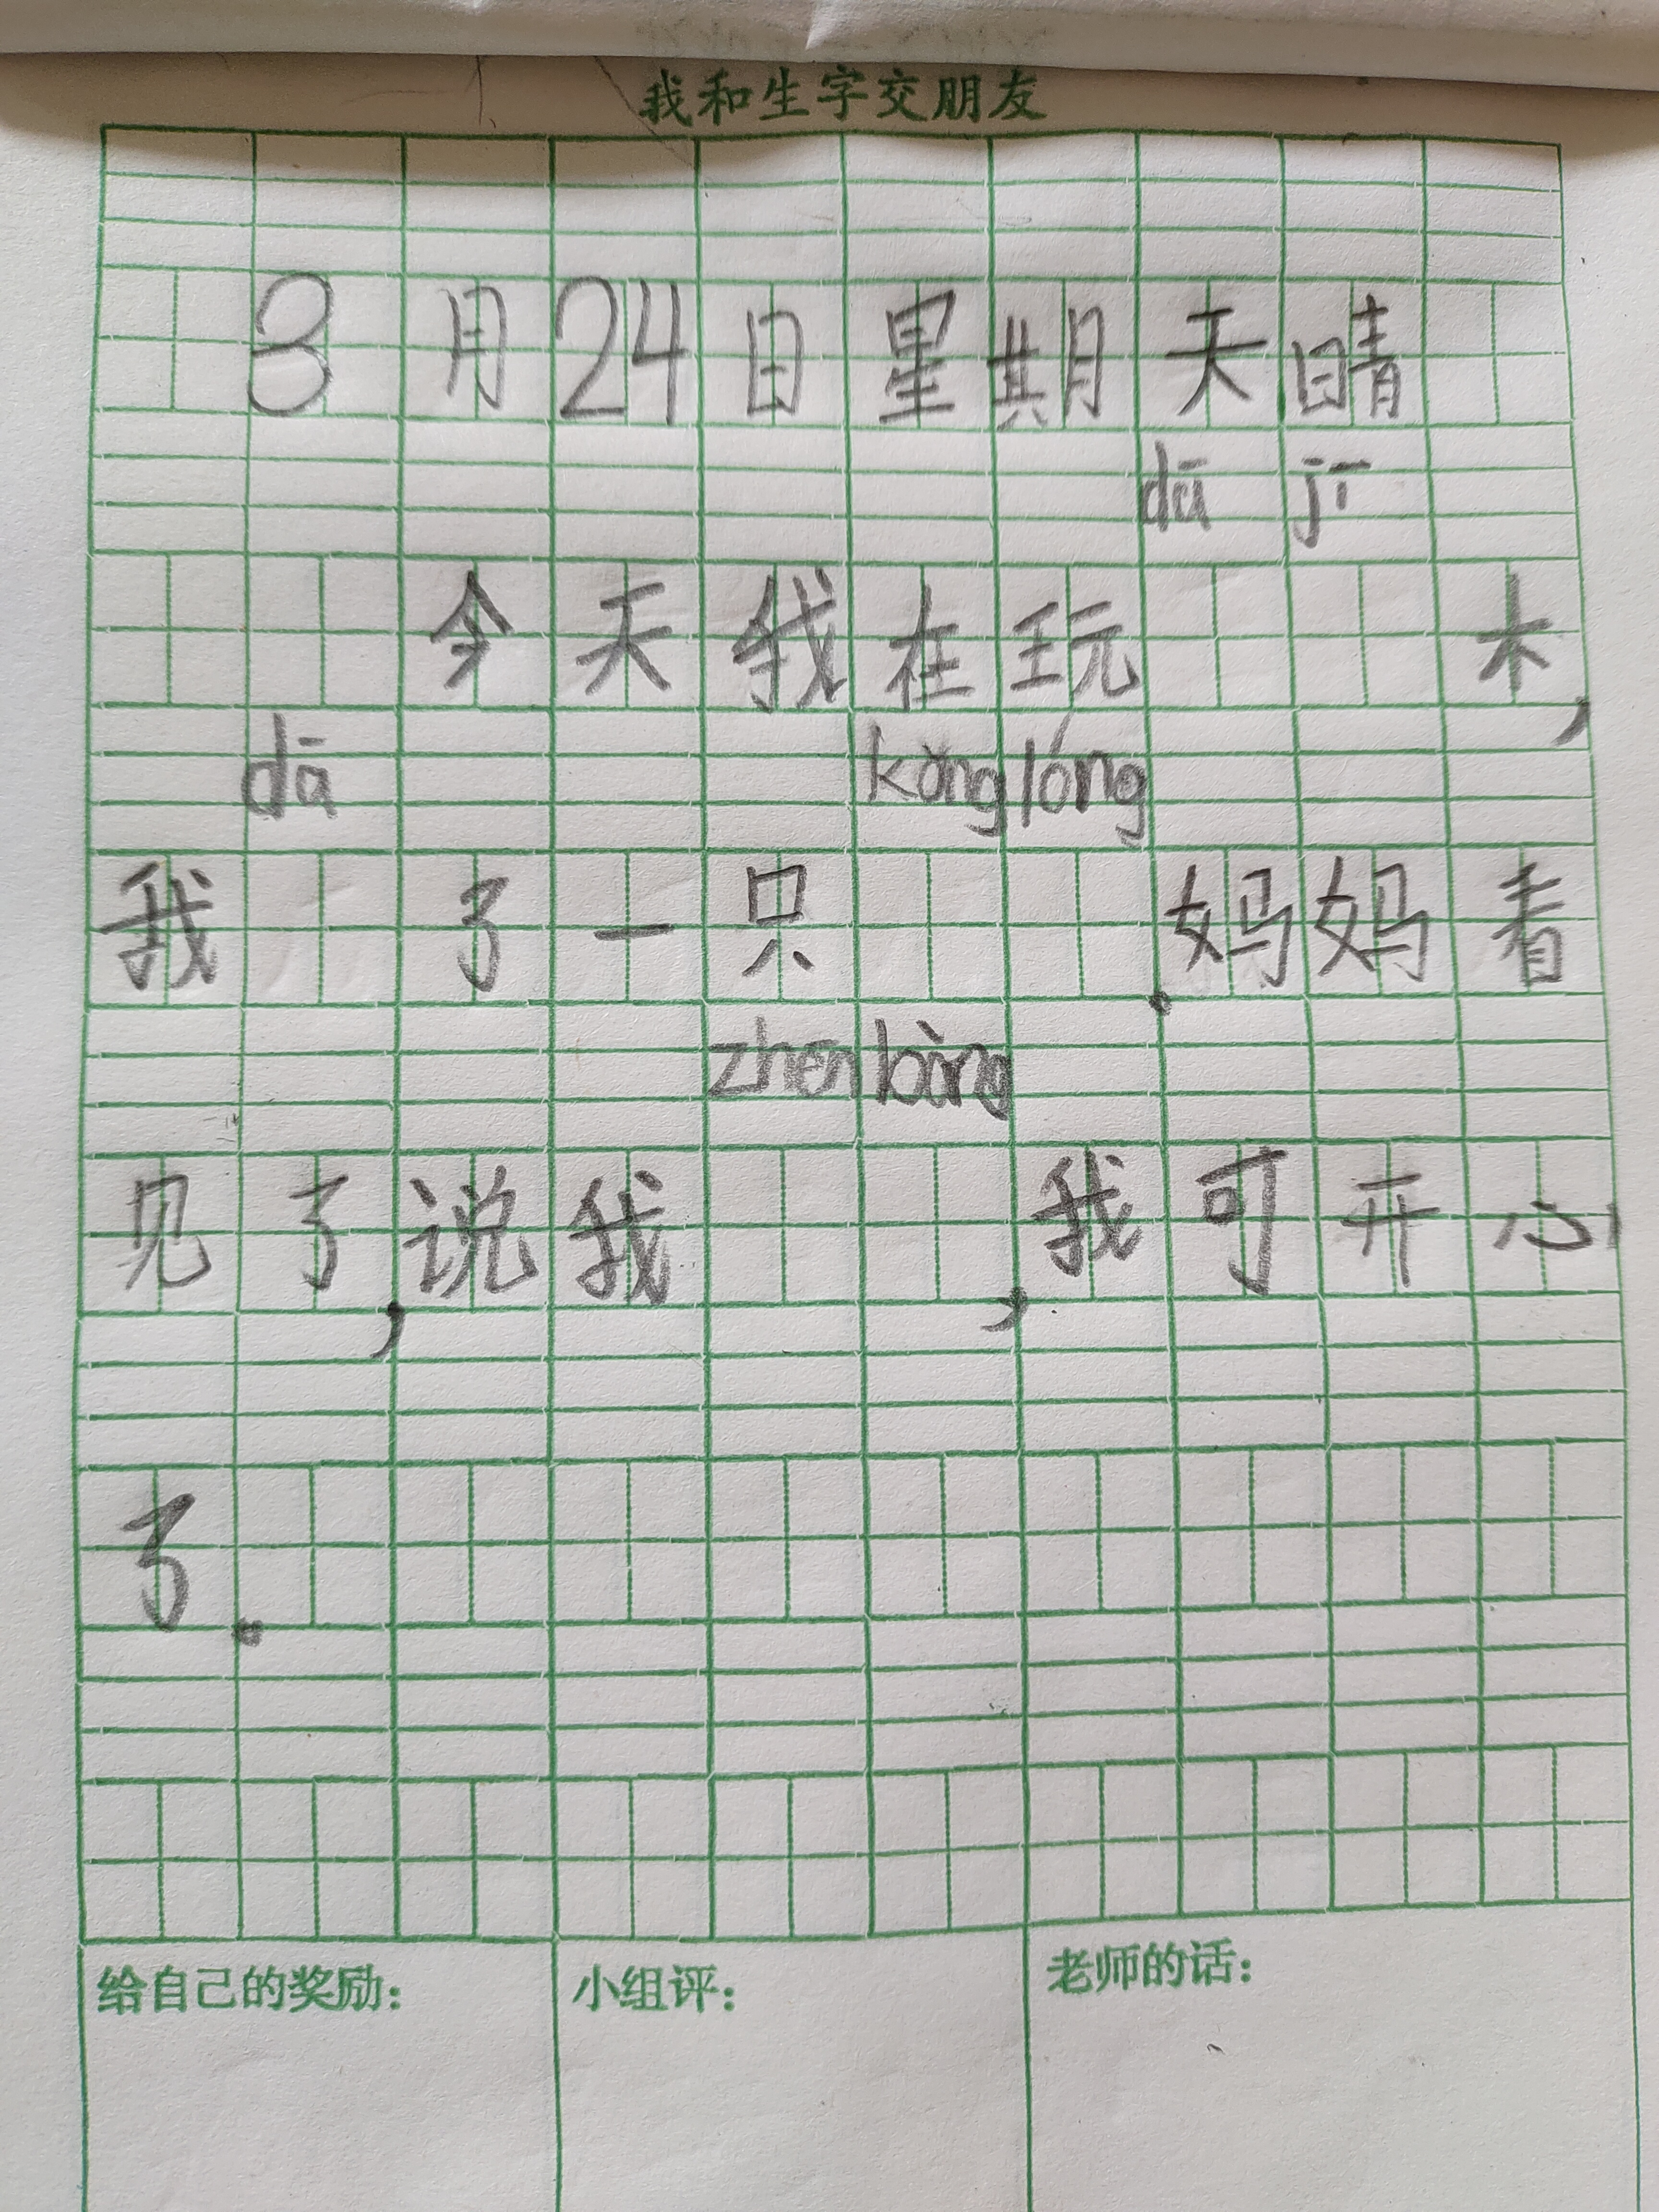 我和生字交朋友
8月24日星期天晴
dā jī
今天我在玩 木，
dā kǒng lóng
我 了一只 。妈妈看
zhēn bàng
见了，说我 ，我可开心
了。
给自己的奖励： 小组评： 老师的话：